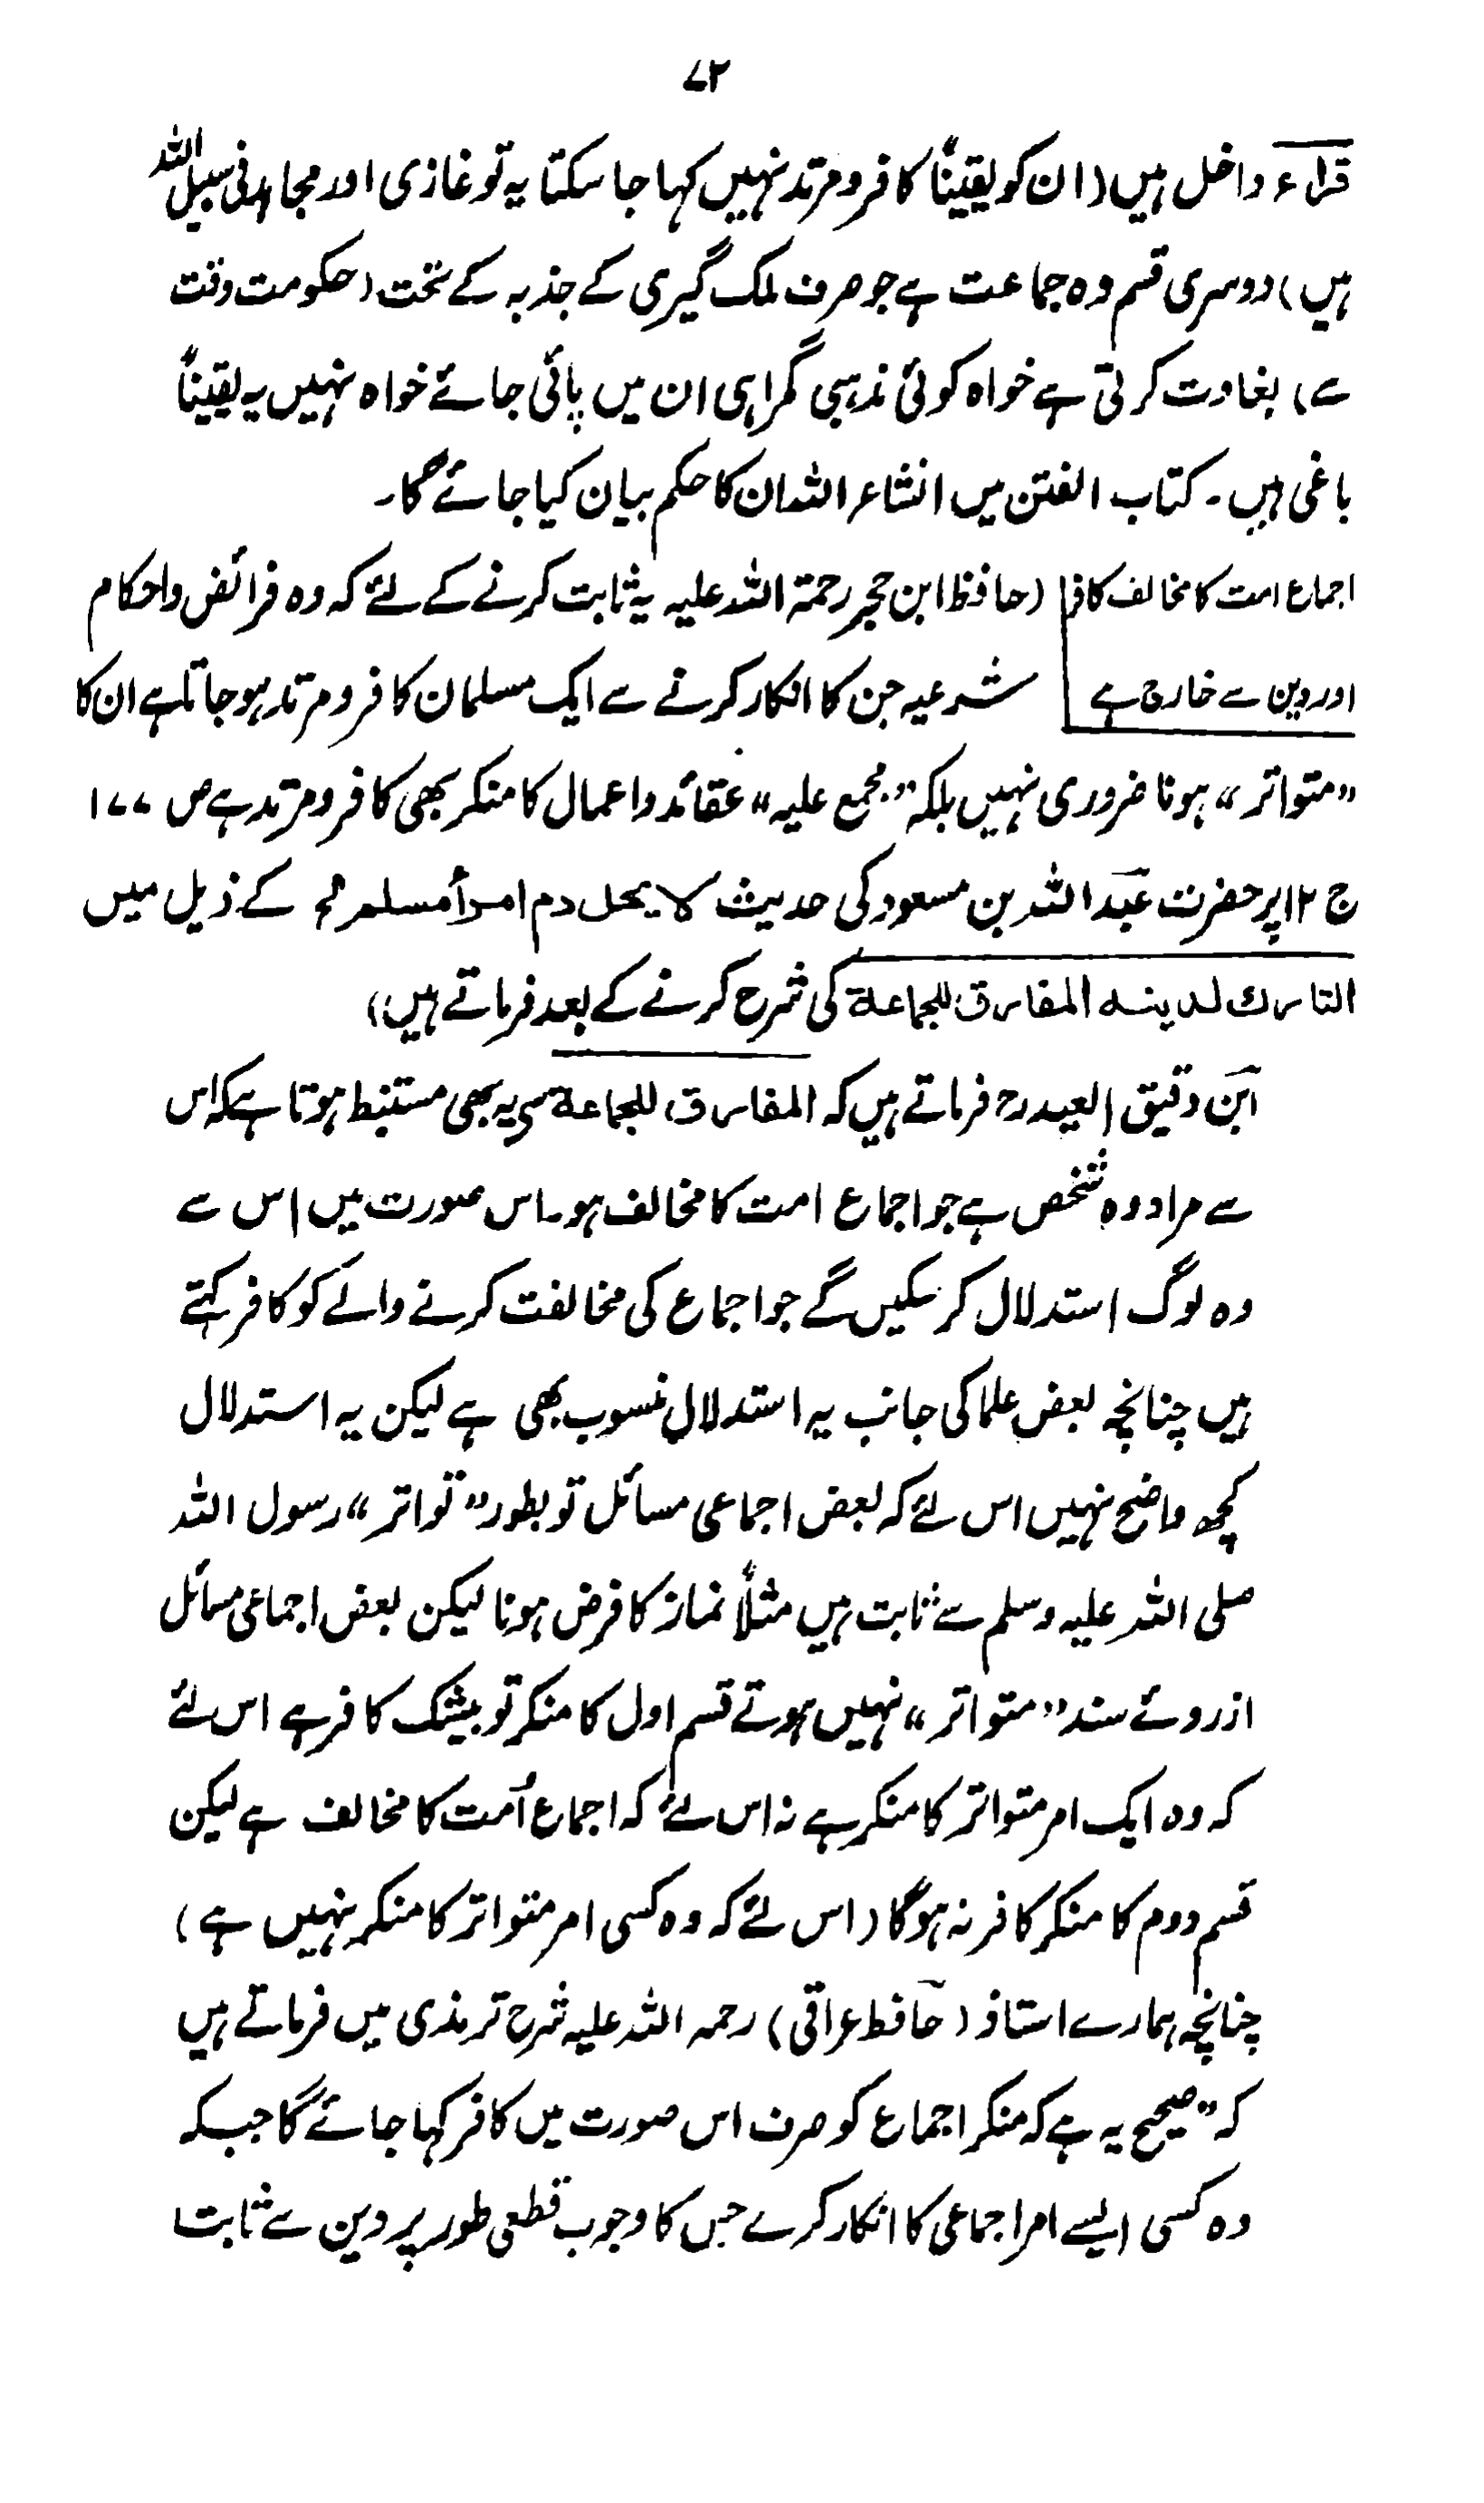 ۷۲
قراء داخل ہیں (ان کو یقیناً کافر و مرتد نہیں کہا جا سکتا یہ تو غازی اور مجاہد فی سبیل اللہ
ہیں) دوسری قسم وہ جماعت ہے جو صرف ملک گیری کے جذبہ کے تحت (حکومت وقت
سے) بغاوت کرتی ہے خواہ کوئی مذہبی گمراہی ان میں پائی جائے خواہ نہیں یہ یقیناً
باغی ہیں۔ کتاب الفتن میں انشاء اللہ ان کا حکم بیان کیا جائے گا۔
اجماع امت کا مخالف کافر (حافظ ابن حجر رحمۃ اللہ علیہ یہ ثابت کرنے کے لئے کہ وہ فرائض و احکام
اور دین سے خارج ہے شرعیہ جن کا انکار کرنے سے ایک مسلمان کافر و مرتد ہو جاتا ہے ان کا
”متواتر“ ہونا ضروری نہیں بلکہ ”مجمع علیہ“ عقائد و اعمال کا منکر بھی کافر و مرتد ہے ص ۱۷۷
ج ۱۲ پر حضرت عبداللہ بن مسعود کی حدیث لا یحل دم امرأ مسلم الخ کے ذیل میں
التارك لدینه المفارق للجماعة کی شرح کرنے کے بعد فرماتے ہیں)
ابن دقیق العید رح فرماتے ہیں کہ المفارق للجماعة سے یہ بھی مستنبط ہوتا ہے کہ اس
سے مراد وہ شخص ہے جو اجماع امت کا مخالف ہو۔ اس صورت میں اس سے
وہ لوگ استدلال کر سکیں گے جو اجماع کی مخالفت کرنے والے کو کافر کہتے
ہیں چنانچہ بعض علما کی جانب یہ استدلال منسوب بھی ہے لیکن یہ استدلال
کچھ واضح نہیں اس لئے کہ بعض اجماعی مسائل تو بطور ”تواتر“ رسول اللہ
صلی اللہ علیہ وسلم سے ثابت ہیں مثلاً نماز کا فرض ہونا لیکن بعض اجماعی مسائل
از روئے سند ”متواتر“ نہیں ہوتے قسم اول کا منکر تو بیشک کافر ہے اس لئے
کہ وہ ایک امر متواتر کا منکر ہے نہ اس لئے کہ اجماع اُمت کا مخالف ہے لیکن
قسم دوم کا منکر کافر نہ ہوگا (اس لئے کہ وہ کسی امر متواتر کا منکر نہیں ہے)
چنانچہ ہمارے استاذ (حافظ عراقی) رحمہ اللہ علیہ شرح ترمذی میں فرماتے ہیں
کہ ”صحیح یہ ہے کہ منکر اجماع کو صرف اس صورت میں کافر کہا جائے گا جبکہ
وہ کسی ایسے امر اجماعی کا انکار کرے جس کا وجوب قطعی طور پر دین سے ثابت